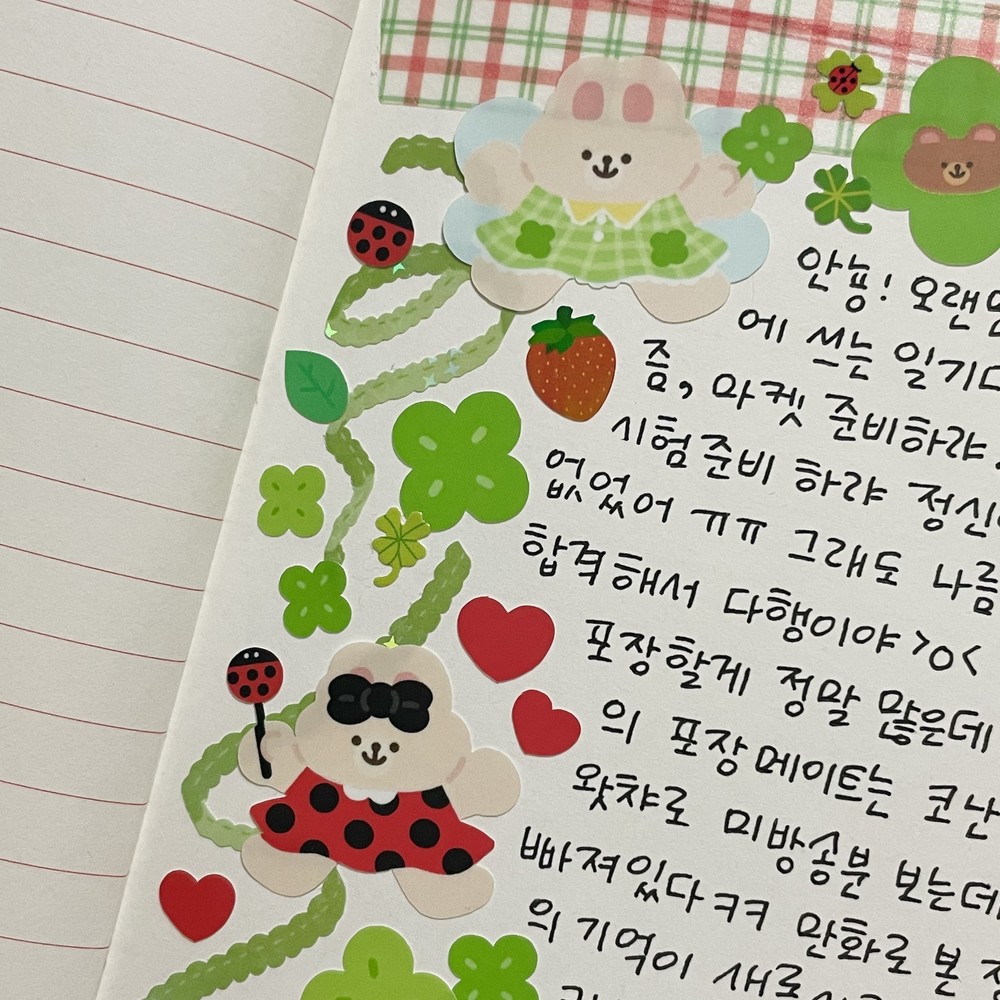 안뇽! 오랜만
에 쓰는 일기다
즘, 마켓 준비하랴
시험준비 하랴 정신
없었어 ㅠㅠ 그래도 나름
합격해서 다행이야 >o<
포장할게 정말 많은데
의 포장메이트는 코난
왓챠로 미방송분 보는데
빠져있다 ㅋㅋ 만화로 본
의 기억이 새로